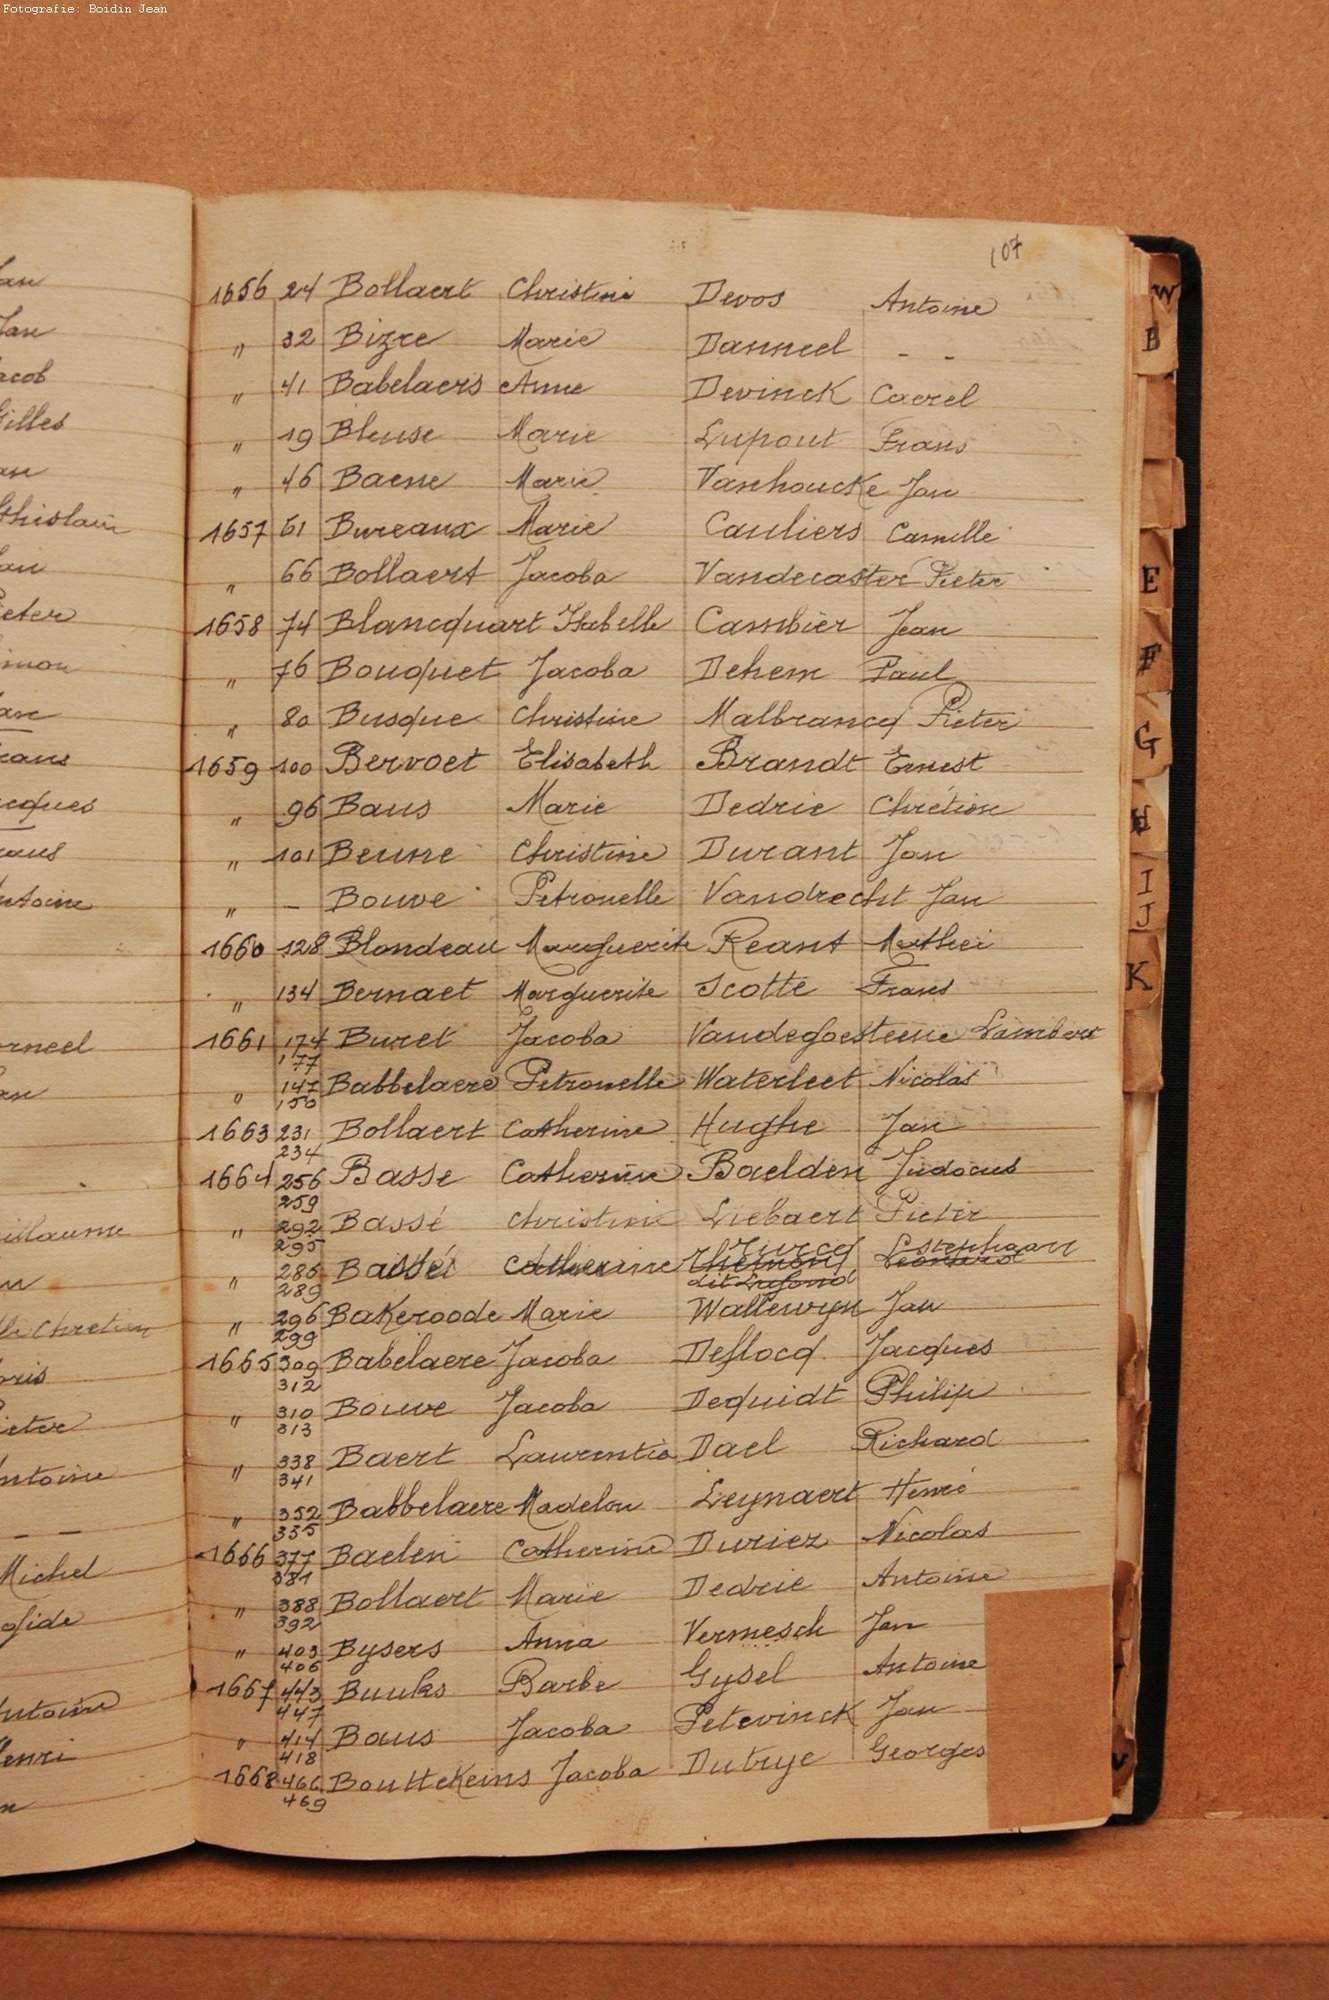 Fotografie: Boidin Jean
107
1656 24 Bollaert Christine Devos Antoine
" 32 Bizre Marie Danneel - -
" 41 Babelaers Anne Devinck Caerel
" 19 Bleuse Marie Lupout Frans
" 46 Baene Marie Vanhoucke Jan
1657 61 Bureaux Marie Cauliers Camille
" 66 Bollaert Jacoba Vandecaster Pieter
1658 74 Blancquart Isabelle Cambier Jean
" 76 Bouquet Jacoba Dehem Paul
" 80 Busque Christine Malbrancq Pieter
1659 100 Bervoet Elisabeth Brandt Ernest
" 96 Baus Marie Dedrie Chrétien
" 101 Beune Christine Durant Jan
" - Bouve Petronelle Vandrecht Jan
1660 128 Blondeau Marguerite Reant Mathei
" 134 Bernaet Marguerite Scotte Frans
1661 174 Buret Jacoba Vandegoesteene Lambert
177
" 147 Babbelaere Petronelle Waterleet Nicolas
150
1663 231 Bollaert Catherine Hughe Jan
234
1664 256 Basse Catherine Baelden Judocus
259
" 292 Bassé Christine Liebaert Pieter
295
" 286 Bassé Catherine Turcq Estephaan
289 dit Lafond
" 296 Bakeroode Marie Wallewyn Jan
299
1665 309 Babelaere Jacoba Deflocq Jacques
312
" 310 Bouve Jacoba Dequidt Philip
313
" 338 Baert Laurentia Dael Richard
341
" 352 Babbelaere Madelon Leynaert Henri
355
1666 377 Baelen Catherine Duriez Nicolas
381
" 388 Bollaert Marie Dedrie Antoine
392
" 403 Bysers Anna Vermesch Jan
406
1667 443 Buuks Barbe Gysel Antoine
447
" 414 Baus Jacoba Petevinck Jan
418
1668 466 Bouttekeins Jacoba Dutrye Georges
469
W
B
E
F
G
H
I
J
K